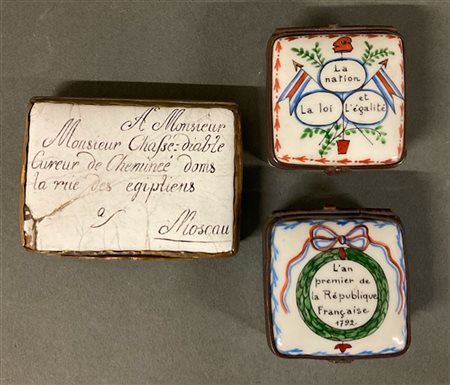 A Monsieur
Monsieur Chasse=diable
Cureur de Cheminée dams
la rue des egiptiens
a
Moscau
La
nation
et
La loi L'égalité
L'an
premier de
la République
Française
1792